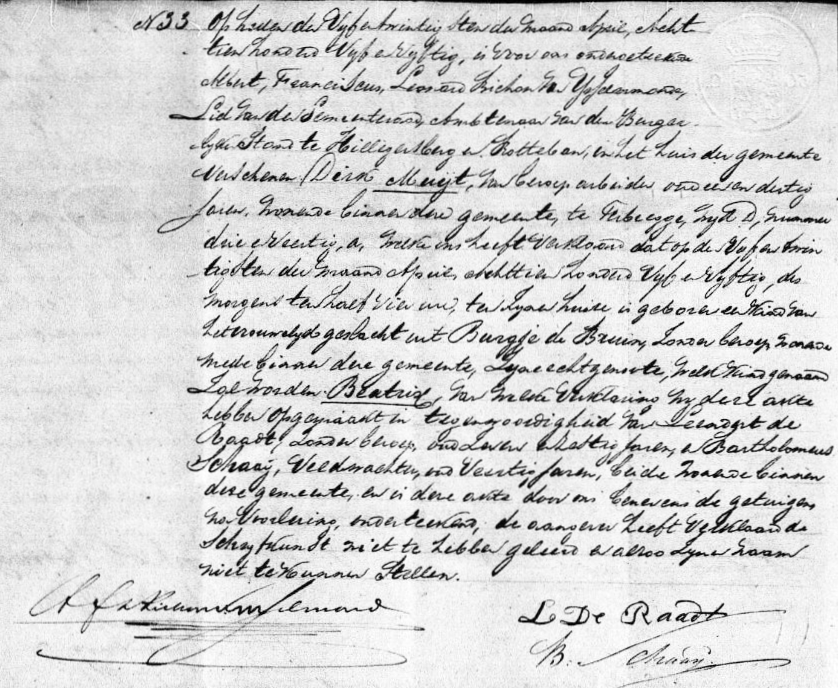 N 33 Op heden den Vyfentwintigsten der maand April, Acht
tien honderd Vyf en Vyftig, is voor ons ondergeteekende
Albert, Franciscus, Leonard Pichon Van Ysselmonde,
Lid van den Gemeenteraad, Ambtenaar van den Burger-
lyken Stand te Hillegersberg en Rotteban, in het huis der gemeente
verschenen Dirk Meijt, van beroep arbeider, oud een en dertig
jaren, wonende binnen deze gemeente, te Terbregge, Wyk D, nummer
drie en Veertig, a, welke ons heeft Verklaard dat op den Vyfentwin
tigsten der maand April, Achttien honderd Vyf en Vyftig, des
morgens ten half vier ure, ten zynen huize, is geboren een Kind van
het vrouwelyk geslacht uit Burgje de Bruin, zonder beroep, wonende
mede binnen deze gemeente, zyne echtgenoote, Welk Kind genaamd
zal worden Beatrix, van welke Verklaring wy deze acte
hebben opgemaakt in tegenwoordigheid van Leendert de
Raadt, zonder beroep, oud zeven en zestig jaren, en Bartholomeus
Schaaij, Veldwachter, oud Veertig jaren, beide wonende binnen
deze gemeente, en is deze acte door ons benevens de getuigen
na Voorlezing, onderteekend, de aangever heeft Verklaard de
Schryfkunst niet te hebben geleerd en alzoo zynen naam
niet te kunnen Stellen.
L De Raadt
B. Schaaij